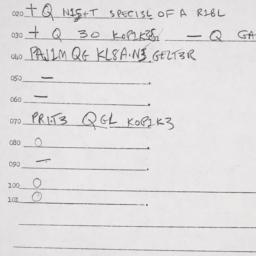 020 + Q N1S+T SPECISL OF A R1BL
030 + Q 30 KOP1K3 — Q GA
040 PAJ1M QG KL8A.N3 GELT3R
050 —
060 —
070 PR1T3 QGL KOP1K3
080 O
090 —
100 O
102 O